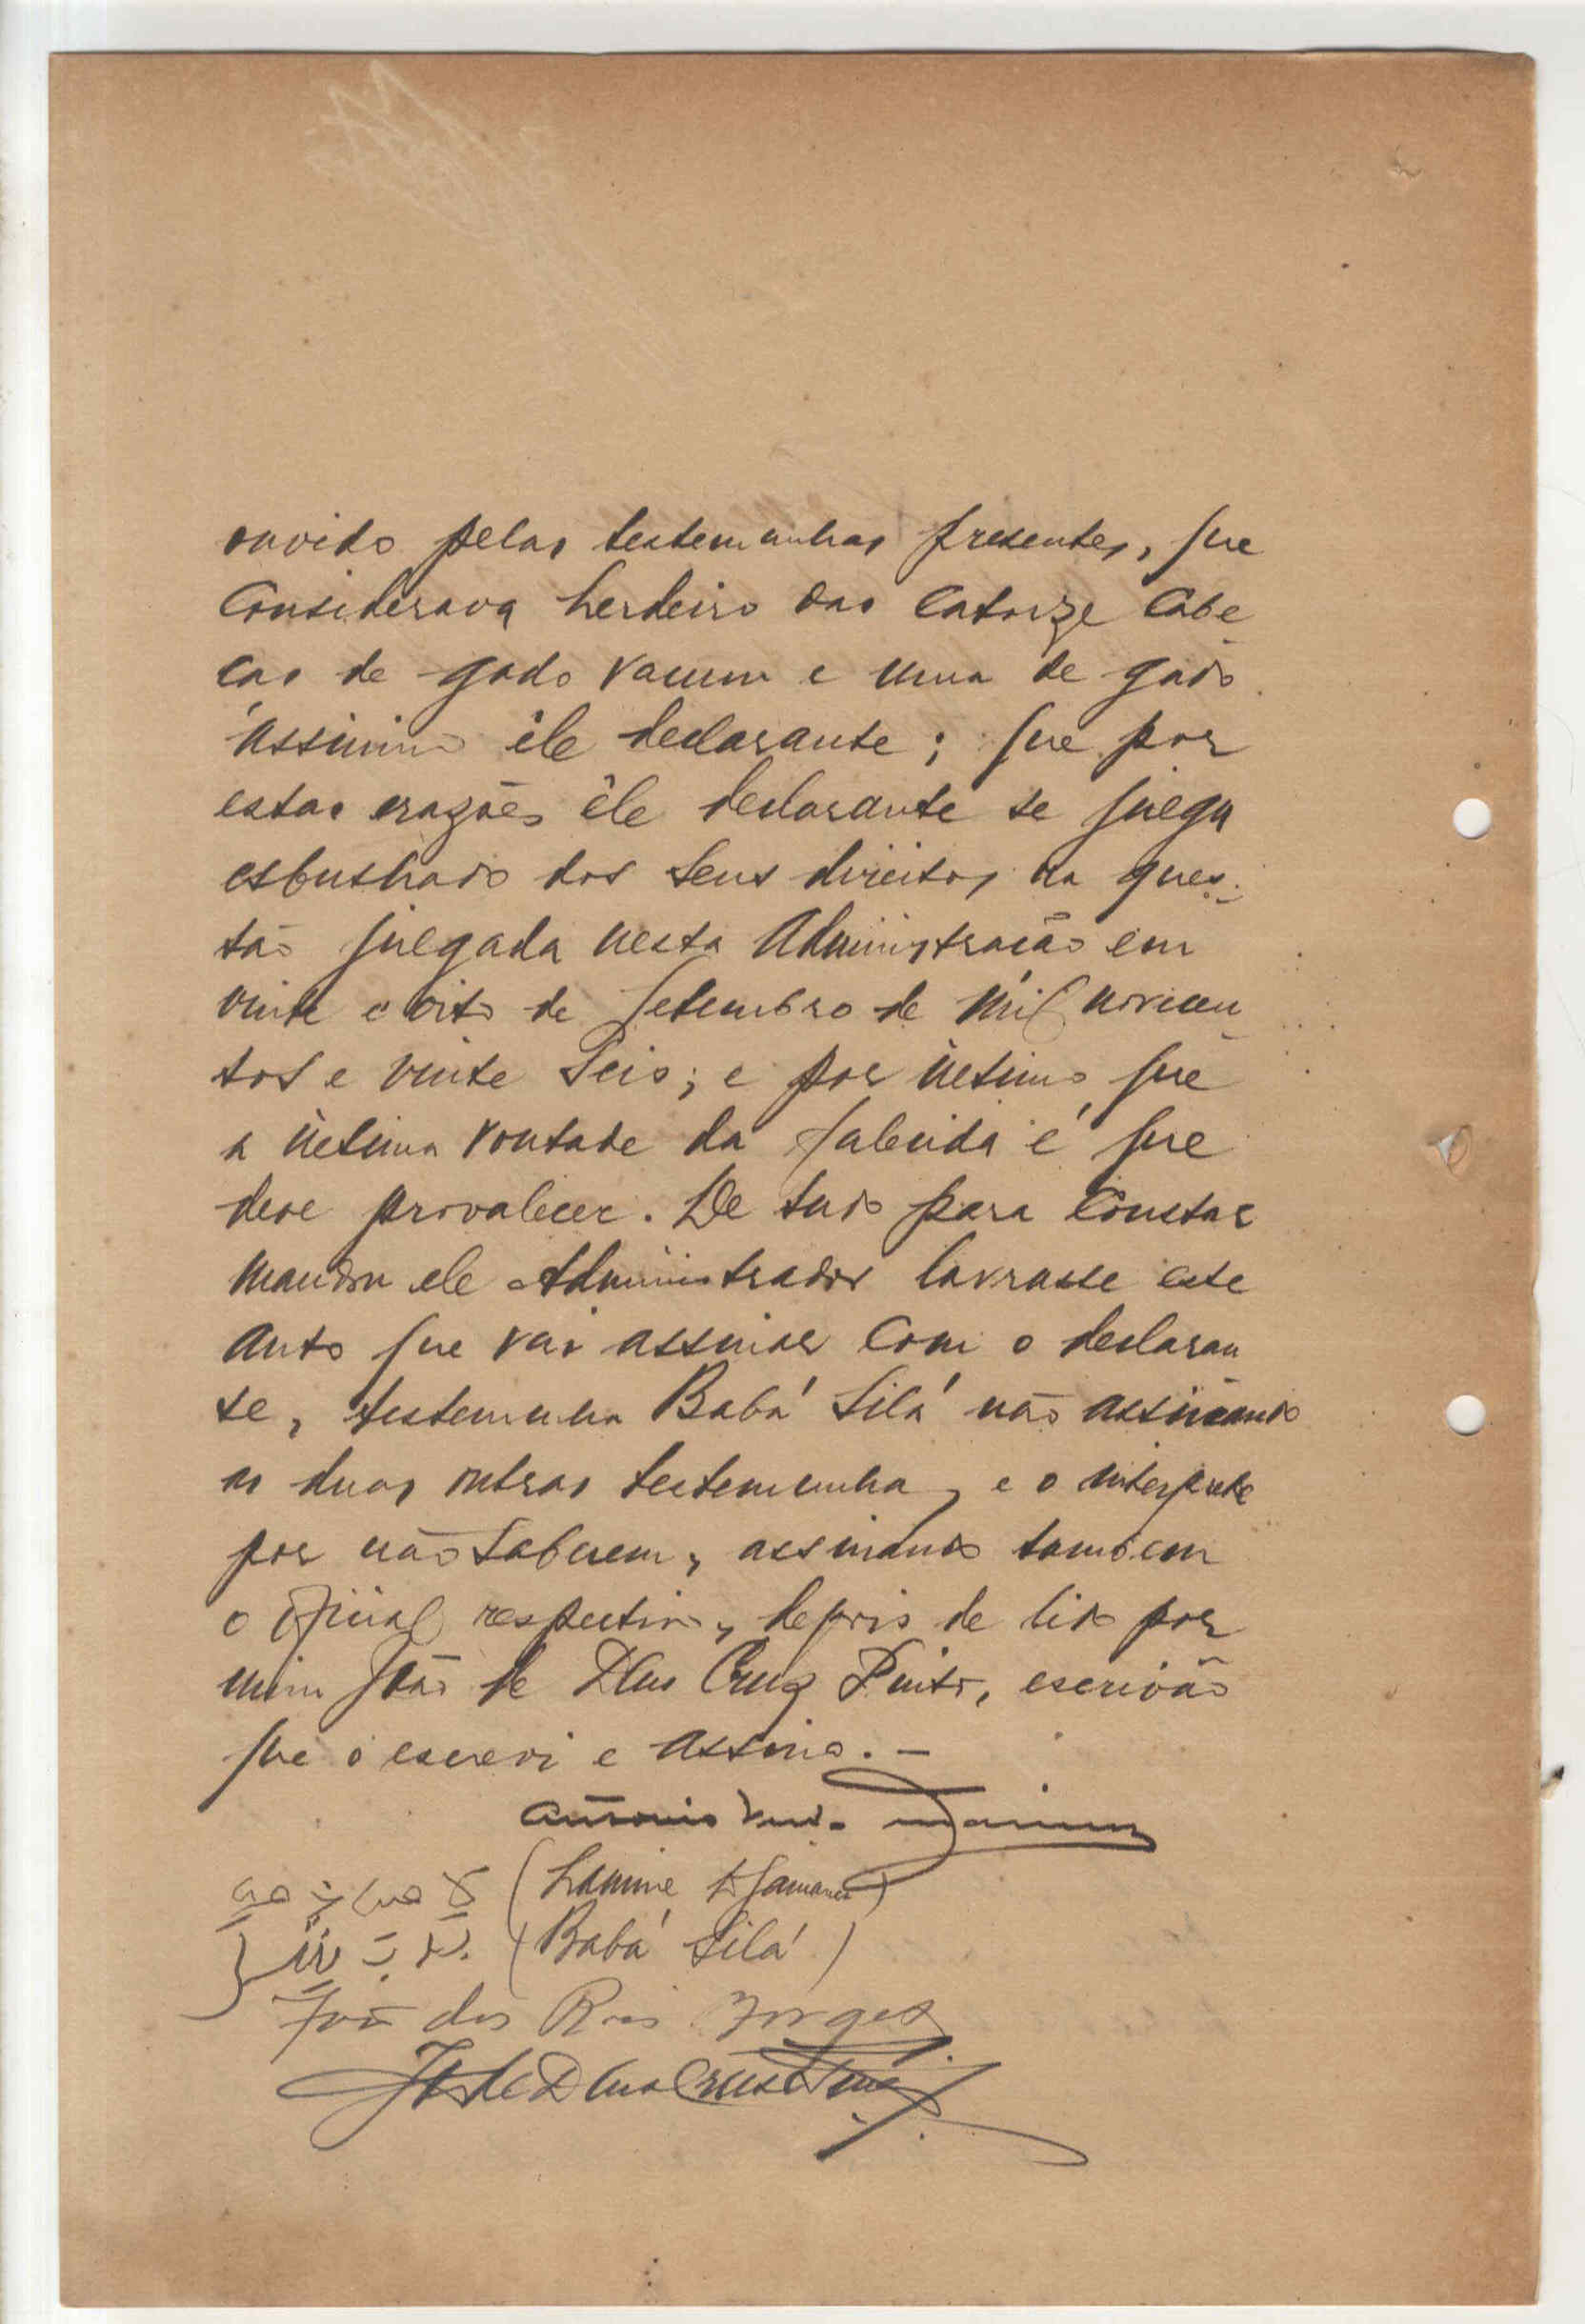 ouvido pelas testemunhas presentes, que
Considerava herdeiro das Catorze Cabe-
ças de gado vacum e uma de gado
assinino êle declarante; que por
estas razões êle declarante se julga
esbulhado dos seus direitos na ques-
tão julgada nesta Administração em
vinte e oito de Setembro de mil novecen-
tos e vinte seis; e por ùltimo que
a ùltima vontade da falecida é que
deve provalecer. De tudo para Constar
mandou ele Administrador lavrasse este
auto que vai assinar com o declaran
te, testemunha Babá Silá não assinando
as duas outras testemunha, e o interprete
por não saberem, assinando tambem
o oficial respectivo, depois de lido por
mim João de Deus Cruz Pinto, escrivão
que o escrevi e assino. —
Antonio
(Lamine Djamanca)
(Babá Silá)
João dos Reis Borges
João de Deus Cruz Pinto